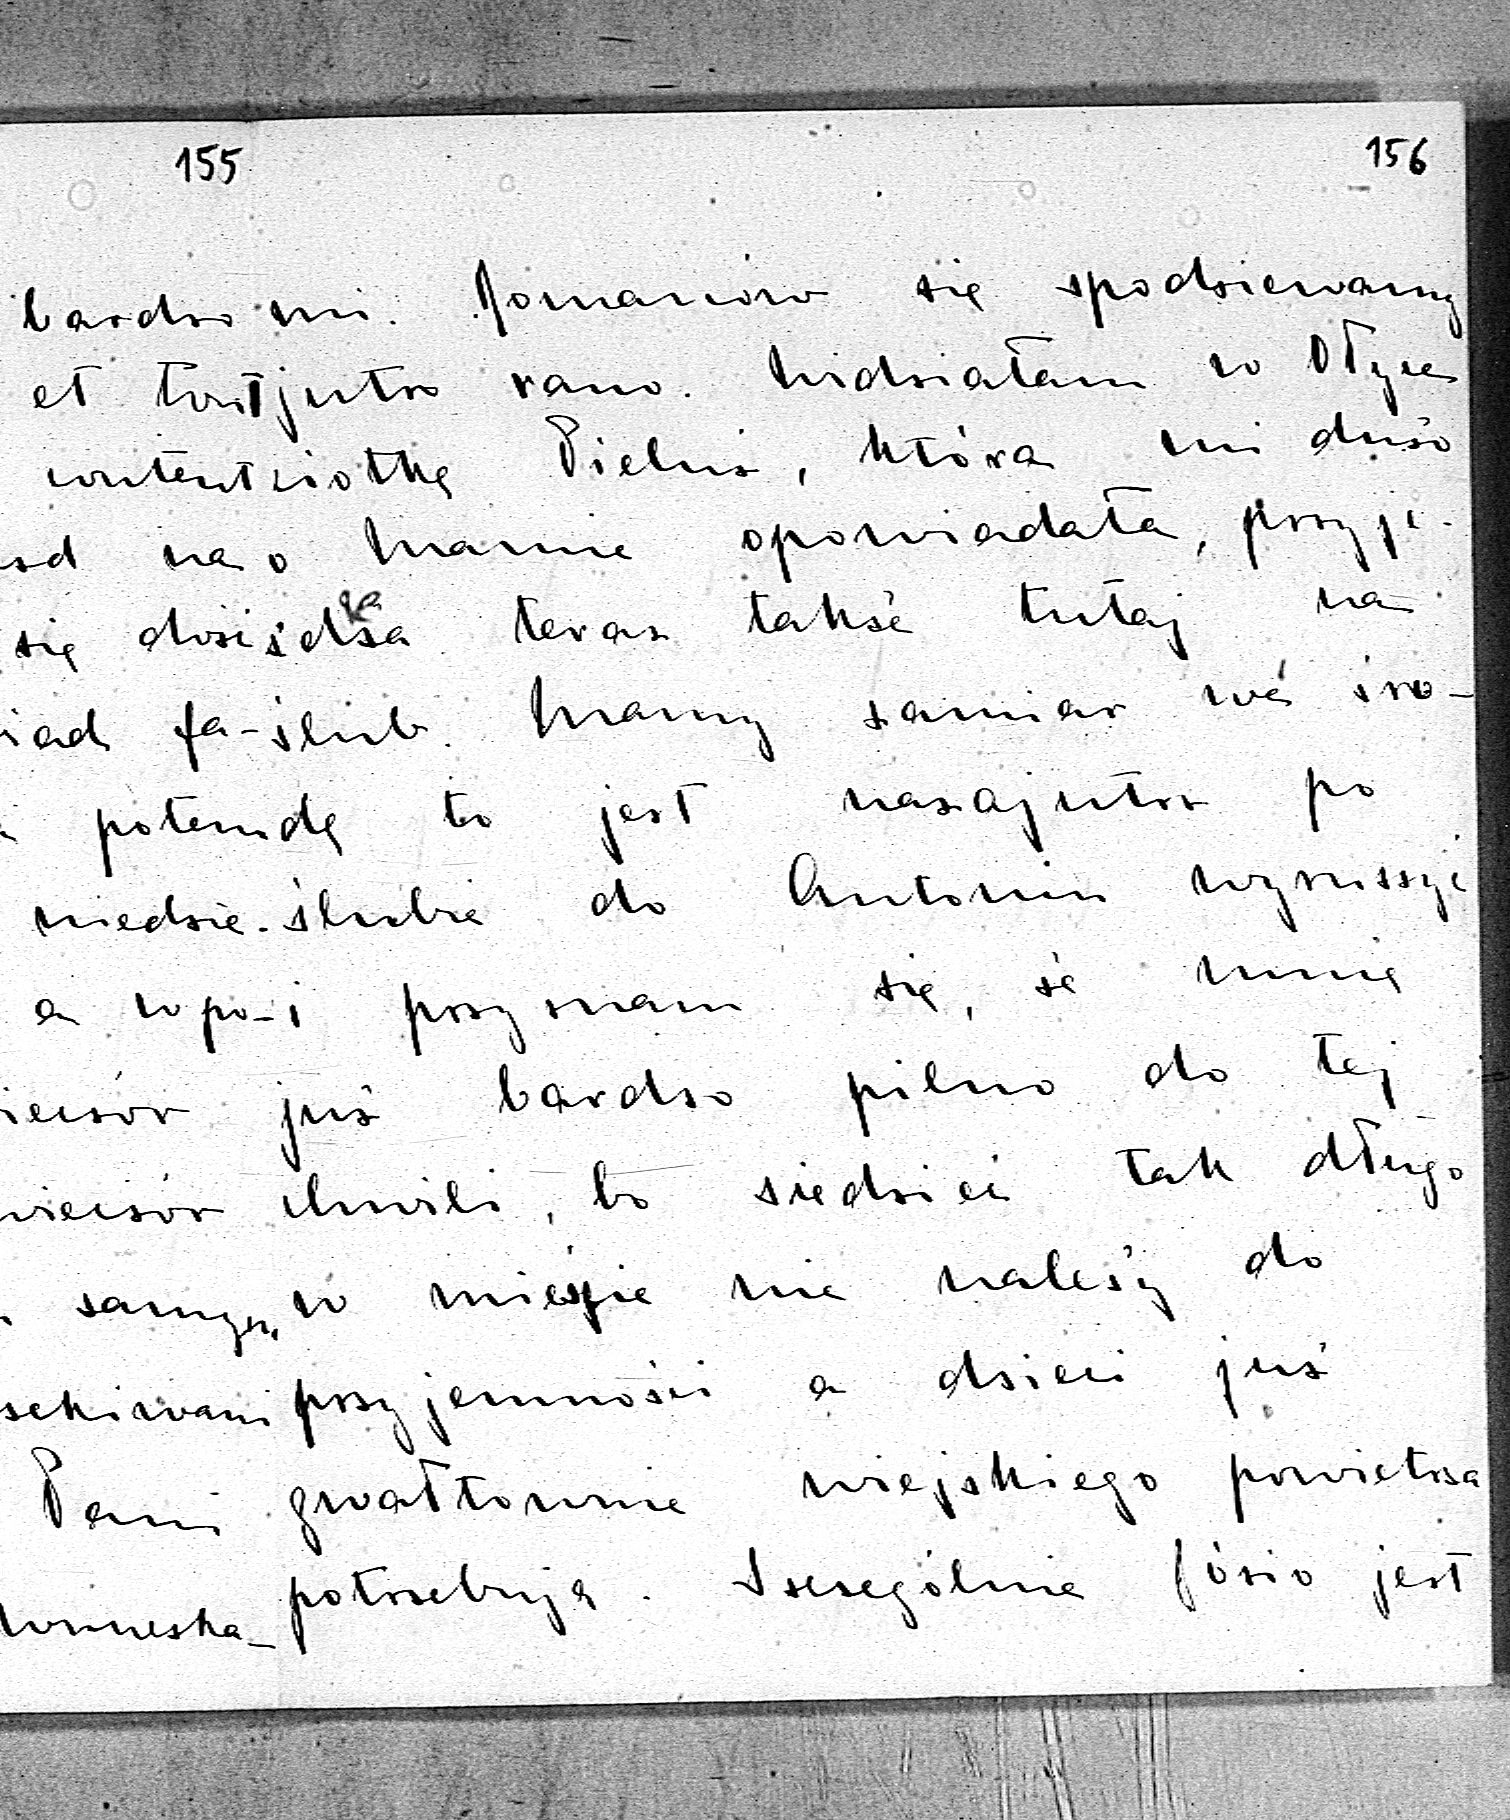 155
156
bardzo mi. Romanów się spodziewamy
et tout jutro rano. Widziałam w Ołyce
content ciotkę Pielus, która mi dużo
na o Mamie opowiadała, przyje-
się dzisiaj ga teraz także tutaj na
fa- ślub. Mamy zamiar we śro-
potem dę to jest nazajutrz po
niedzie- ślubie do Antonin wyruszyć
a w po- i przyznam się, że mnie
wieczór już bardzo pilno do tej
wieczór chwili, bo siedzieć tak długo
samym, w mieście nie należy do
przyjemności a dzieci już
Pani gwałtownie wiejskiego powietrza
potrzebują. Szczególnie Józio jest